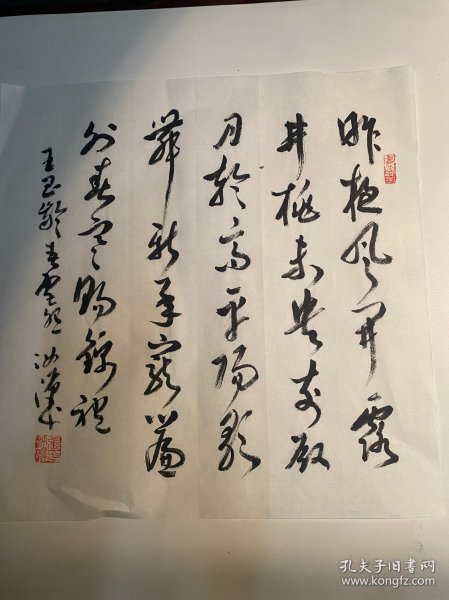 昨夜风开露
井桃未央前殿
月轮高平阳歌
舞新承宠帘
外春寒赐锦袍
王昌龄春宫
孔夫子旧书网
www.kongfz.com